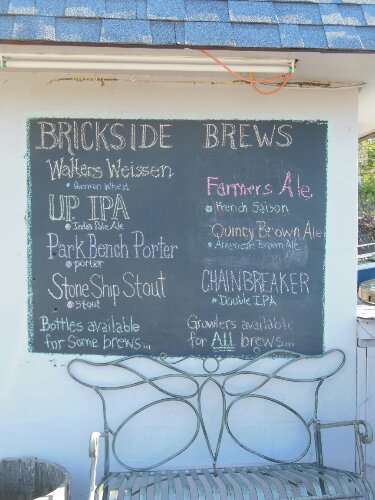 BRICKSIDE BREWS
Walters Weissen
German Wheat
U.P. IPA
India Pale Ale
Park Bench Porter
porter
Stone Ship Stout
Stout
Bottles available
for some brews...
Farmers Ale
French Saison
Quincy Brown Ale
American Brown Ale
CHAINBREAKER
Double IPA
Growlers available
for ALL brews...